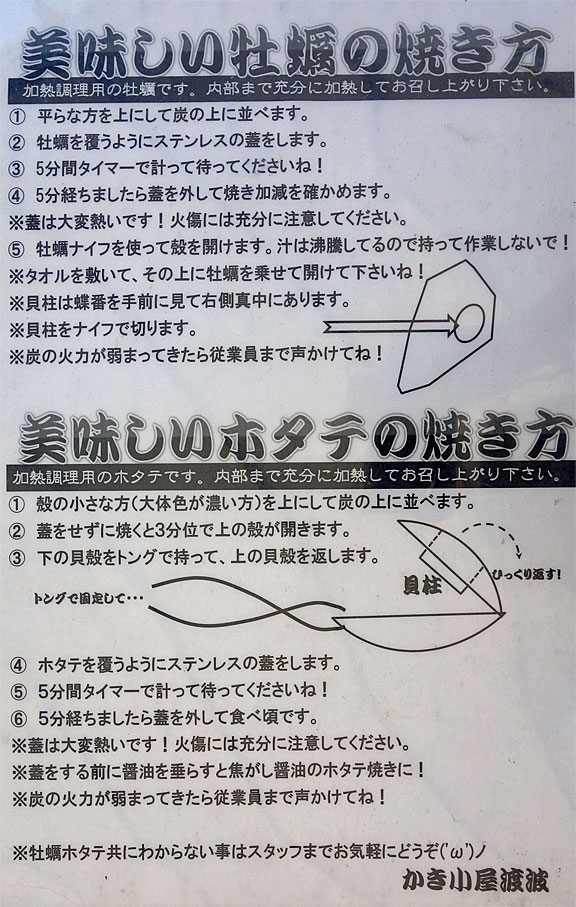 美味しい牡蠣の焼き方
加熱調理用の牡蠣です。内部まで充分に加熱してお召し上がり下さい。
① 平らな方を上にして炭の上に並べます。
② 牡蠣を覆うようにステンレスの蓋をします。
③ 5分間タイマーで計って待ってくださいね！
④ 5分経ちましたら蓋を外して焼き加減を確かめます。
※蓋は大変熱いです！火傷には充分に注意してください。
⑤ 牡蠣ナイフを使って殻を開けます。汁は沸騰してるので持って作業しないで！
※タオルを敷いて、その上に牡蠣を乗せて開けて下さいね！
※貝柱は蝶番を手前に見て右側真中にあります。
※貝柱をナイフで切ります。
※炭の火力が弱まってきたら従業員まで声かけてね！
美味しいホタテの焼き方
加熱調理用のホタテです。内部まで充分に加熱してお召し上がり下さい。
① 殻の小さな方（大体色が濃い方）を上にして炭の上に並べます。
② 蓋をせずに焼くと3分位で上の殻が開きます。
③ 下の貝殻をトングで持って、上の貝殻を返します。
貝柱
ひっくり返す!
トングで固定して・・・
④ ホタテを覆うようにステンレスの蓋をします。
⑤ 5分間タイマーで計って待ってくださいね！
⑥ 5分経ちましたら蓋を外して食べ頃です。
※蓋は大変熱いです！火傷には充分に注意してください。
※蓋をする前に醤油を垂らすと焦がし醤油のホタテ焼きに！
※炭の火力が弱まってきたら従業員まで声かけてね！
※牡蠣ホタテ共にわからない事はスタッフまでお気軽にどうぞ('ω')ノ
かき小屋渡波